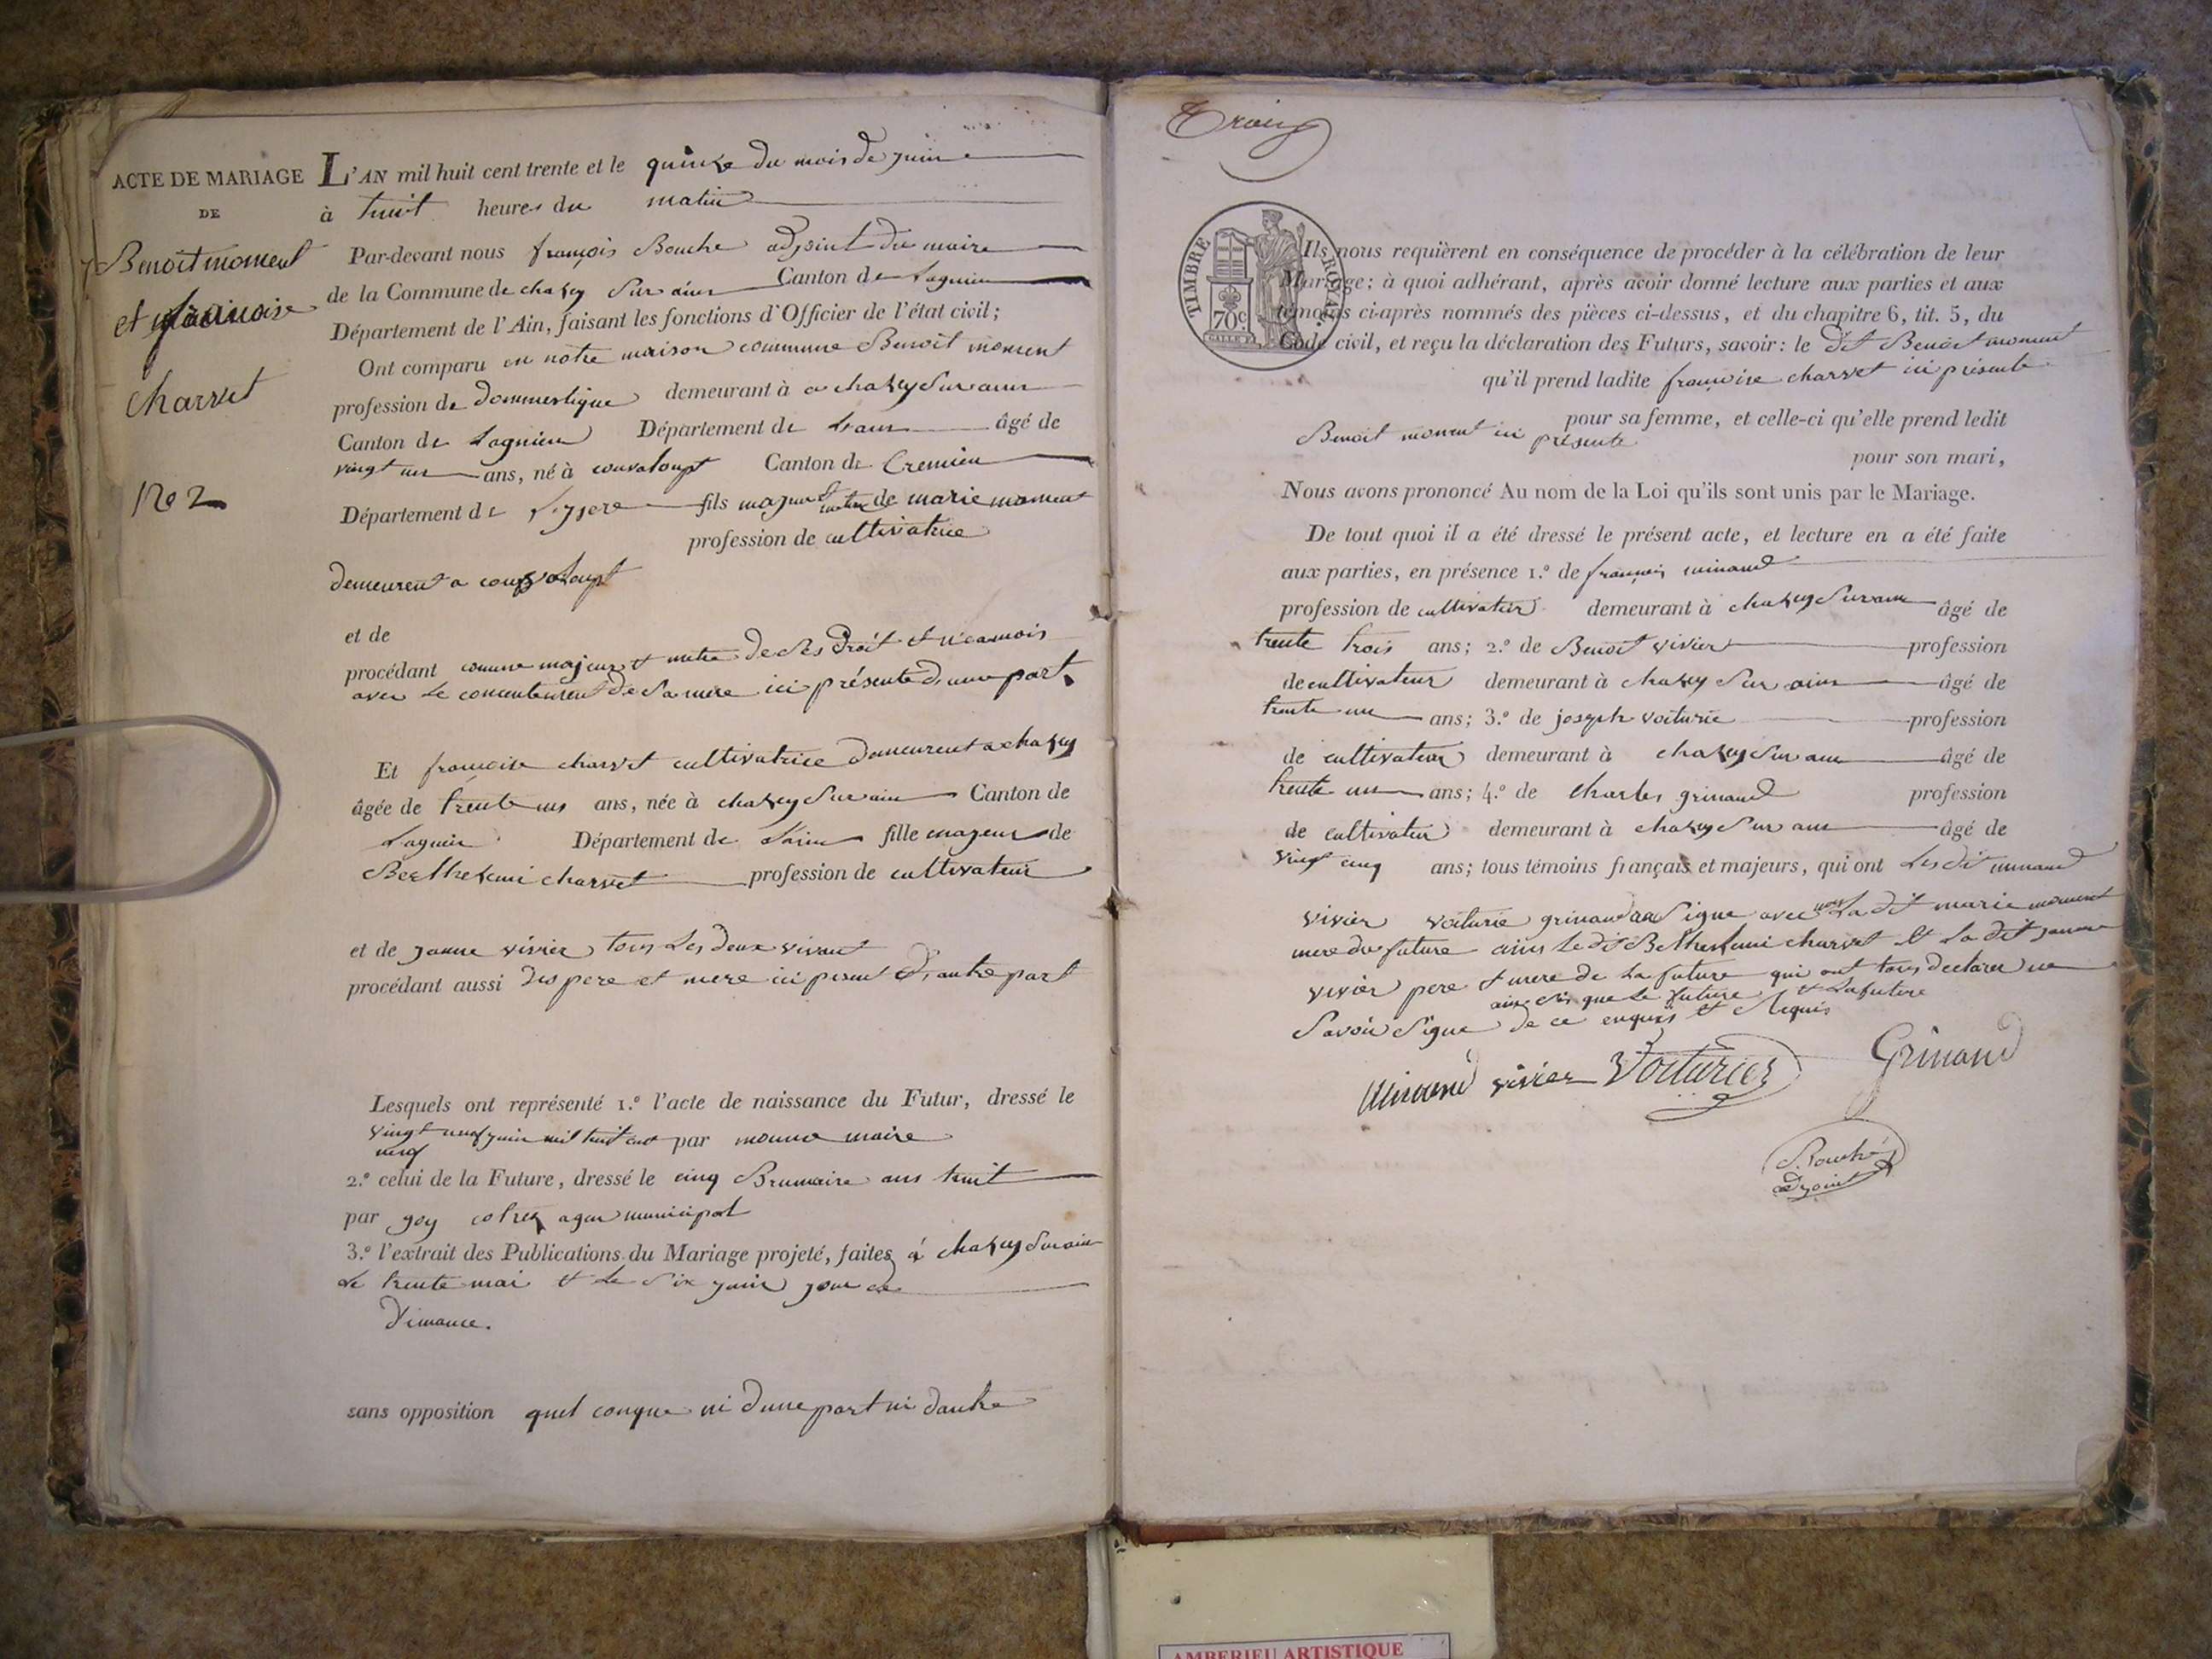 ACTE DE MARIAGE
DE
Benoit moment
et françoise
charvet
No 2
L'AN mil huit cent trente et le quinze du mois de juin
à huit heures du matin
Par-devant nous françois Bouche adjoint du maire
de la Commune de chazey Sur ain Canton de Lagnieu
Département de l'Ain, faisant les fonctions d'Officier de l'état civil;
Ont comparu en notre maison commune Benoit moment
profession de dommestique demeurant à a chazey Sur ain
Canton de Lagnieu Département de Lain âgé de
vingt un ans, né à Canton de Cremieu
Département de L'ysere fils majeur de marie moment
profession de cultivatrice
demeurent a
et de
procédant comme majeur et metre de Ses Droit et neamois
avec le concentement de Sa mere ici présente d'une part
Et françoise charvet cultivatrice demeurent a chazey
âgée de trente un ans, née à chazey Sur ain Canton de
Lagnieu Département de Lain fille majeur de
Berthelemi charvet profession de cultivateur
et de janne vivier tous Les deux vivant
procédant aussi des pere et mere ici presut d'autre part
Lesquels ont représenté 1.º l'acte de naissance du Futur, dressé le
vingt neuf juin mil huit cent par maire
neuf
2.º celui de la Future, dressé le cinq Brumaire ans huit
par goy agen municipal
3.º l'extrait des Publications du Mariage projeté, faites à chazey Sur ain
Le trente mai et Le Six juin jour de
Dimance.
sans opposition quel conque ni d'une part ni dautre
Trois
TIMBRE ROYAL
70 c.
Ils nous requièrent en conséquence de procéder à la célébration de leur
Mariage; à quoi adhérant, après avoir donné lecture aux parties et aux
témoins ci-après nommés des pièces ci-dessus, et du chapitre 6, tit. 5, du
Code civil, et reçu la déclaration des Futurs, savoir: le dit Benoit moment
qu'il prend ladite françoise charvet ici présente
pour sa femme, et celle-ci qu'elle prend ledit
Benoit moment ici présente
pour son mari,
Nous avons prononcé Au nom de la Loi qu'ils sont unis par le Mariage.
De tout quoi il a été dressé le présent acte, et lecture en a été faite
aux parties, en présence 1.º de françois minand
profession de cultivateur demeurant à chazey Sur ain âgé de
trente trois ans; 2.º de Benoit vivier profession
de cultivateur demeurant à chazey Sur ain âgé de
trente un ans; 3.º de joseph voiturie profession
de cultivateur demeurant à chazey Sur ain âgé de
trente un ans; 4.º de Charles grinand profession
de cultivateur demeurant à chazey Sur ain âgé de
vingt cinq ans; tous témoins français et majeurs, qui ont Les dit minand
vivier voiturie grinand Signe avec nous La dit marie moment
mere du future ains Le dit Berthelemi charvet et La dit janne
vivier pere et mere de La future qui ont tous declarer ne
ainsi que Le future et La future
Savoir Signe de ce enquis et Requis
Minand vivier Voiturier Grinand
Bouché
adjoint
AMBERIEU ARTISTIQUE